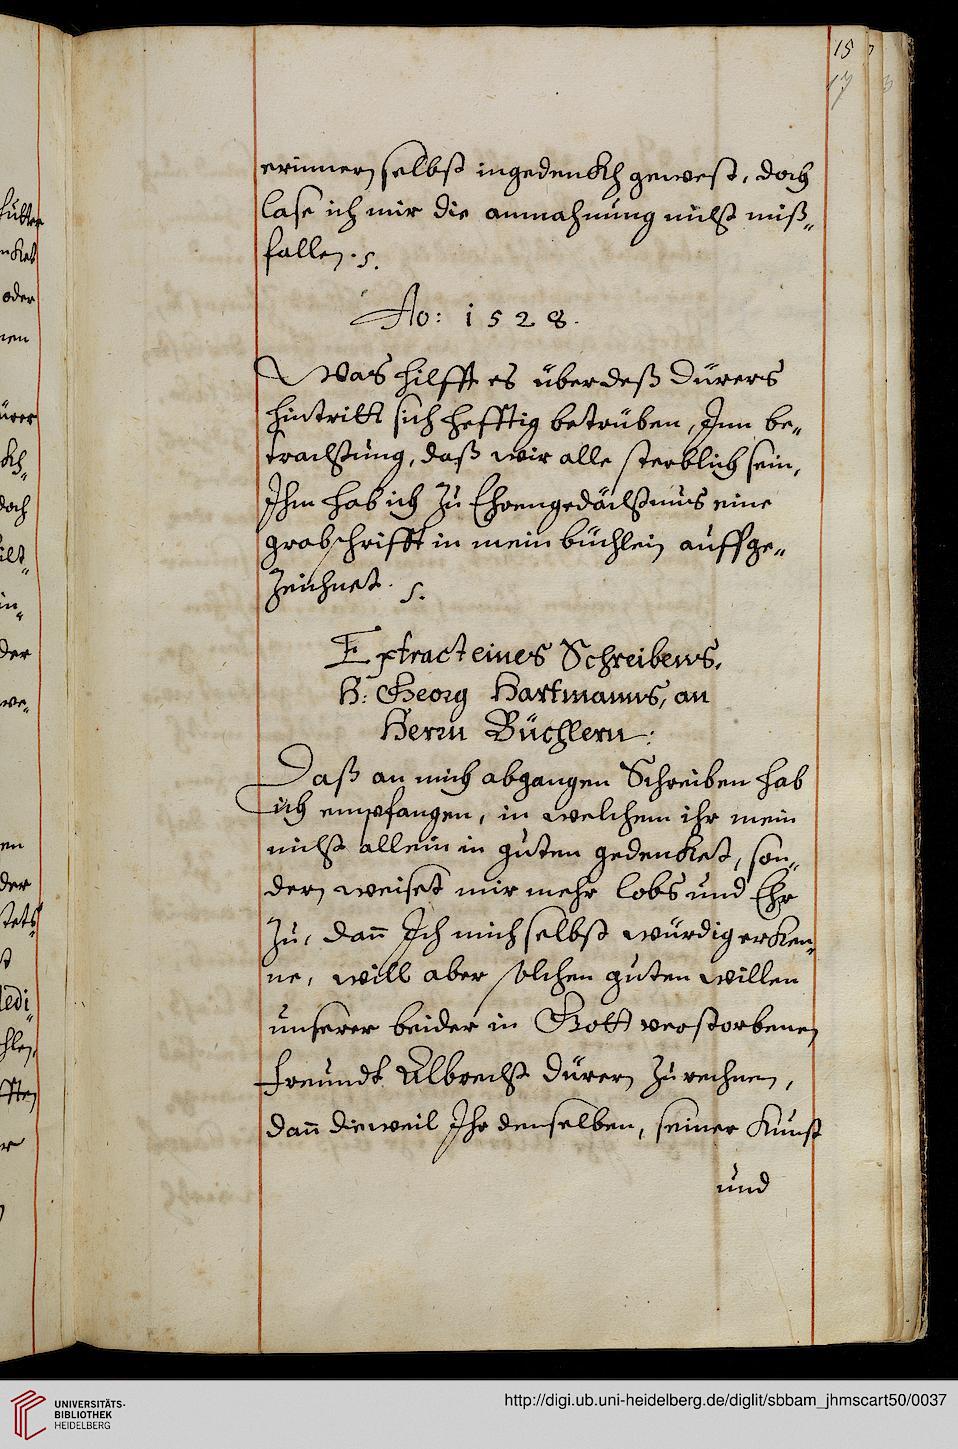 15
17
erinnern selbst ingedenkh gewest, doch
lase ich mir die anmahnung nicht miß„
fallen. s.
Ao: 1528.
Was hilfft es über deß Dürers
hintritt sich hefftig betrüben, Inn be„
trachtung, daß wir alle sterblich sein,
Ihm hab ich zu Ehrengedächtnus eine
grabschrifft in mein büchlein auffge„
zeichnet. s.
Extract eines Schreibens,
H: Georg Hartmanns, an
Herrn Büchlern:
Daß an mich abgangen Schreiben hab
ich empfangen, in welchem ihr mein
nicht allein in guten gedenket, son„
dern weiset mir mehr lobs und Ehr
zu, dann Ich mich selbst würdig erken„
ne, will aber solchen guten willen
unserer beider in Gott verstorbenen
freundt Albrecht Dürern zurechnen,
dann dieweil Ihr denselben, seiner Kunst
und
oder
der
UNIVERSITÄTS-
BIBLIOTHEK
HEIDELBERG
http://digi.ub.uni-heidelberg.de/diglit/sbbam_jhmscart50/0037